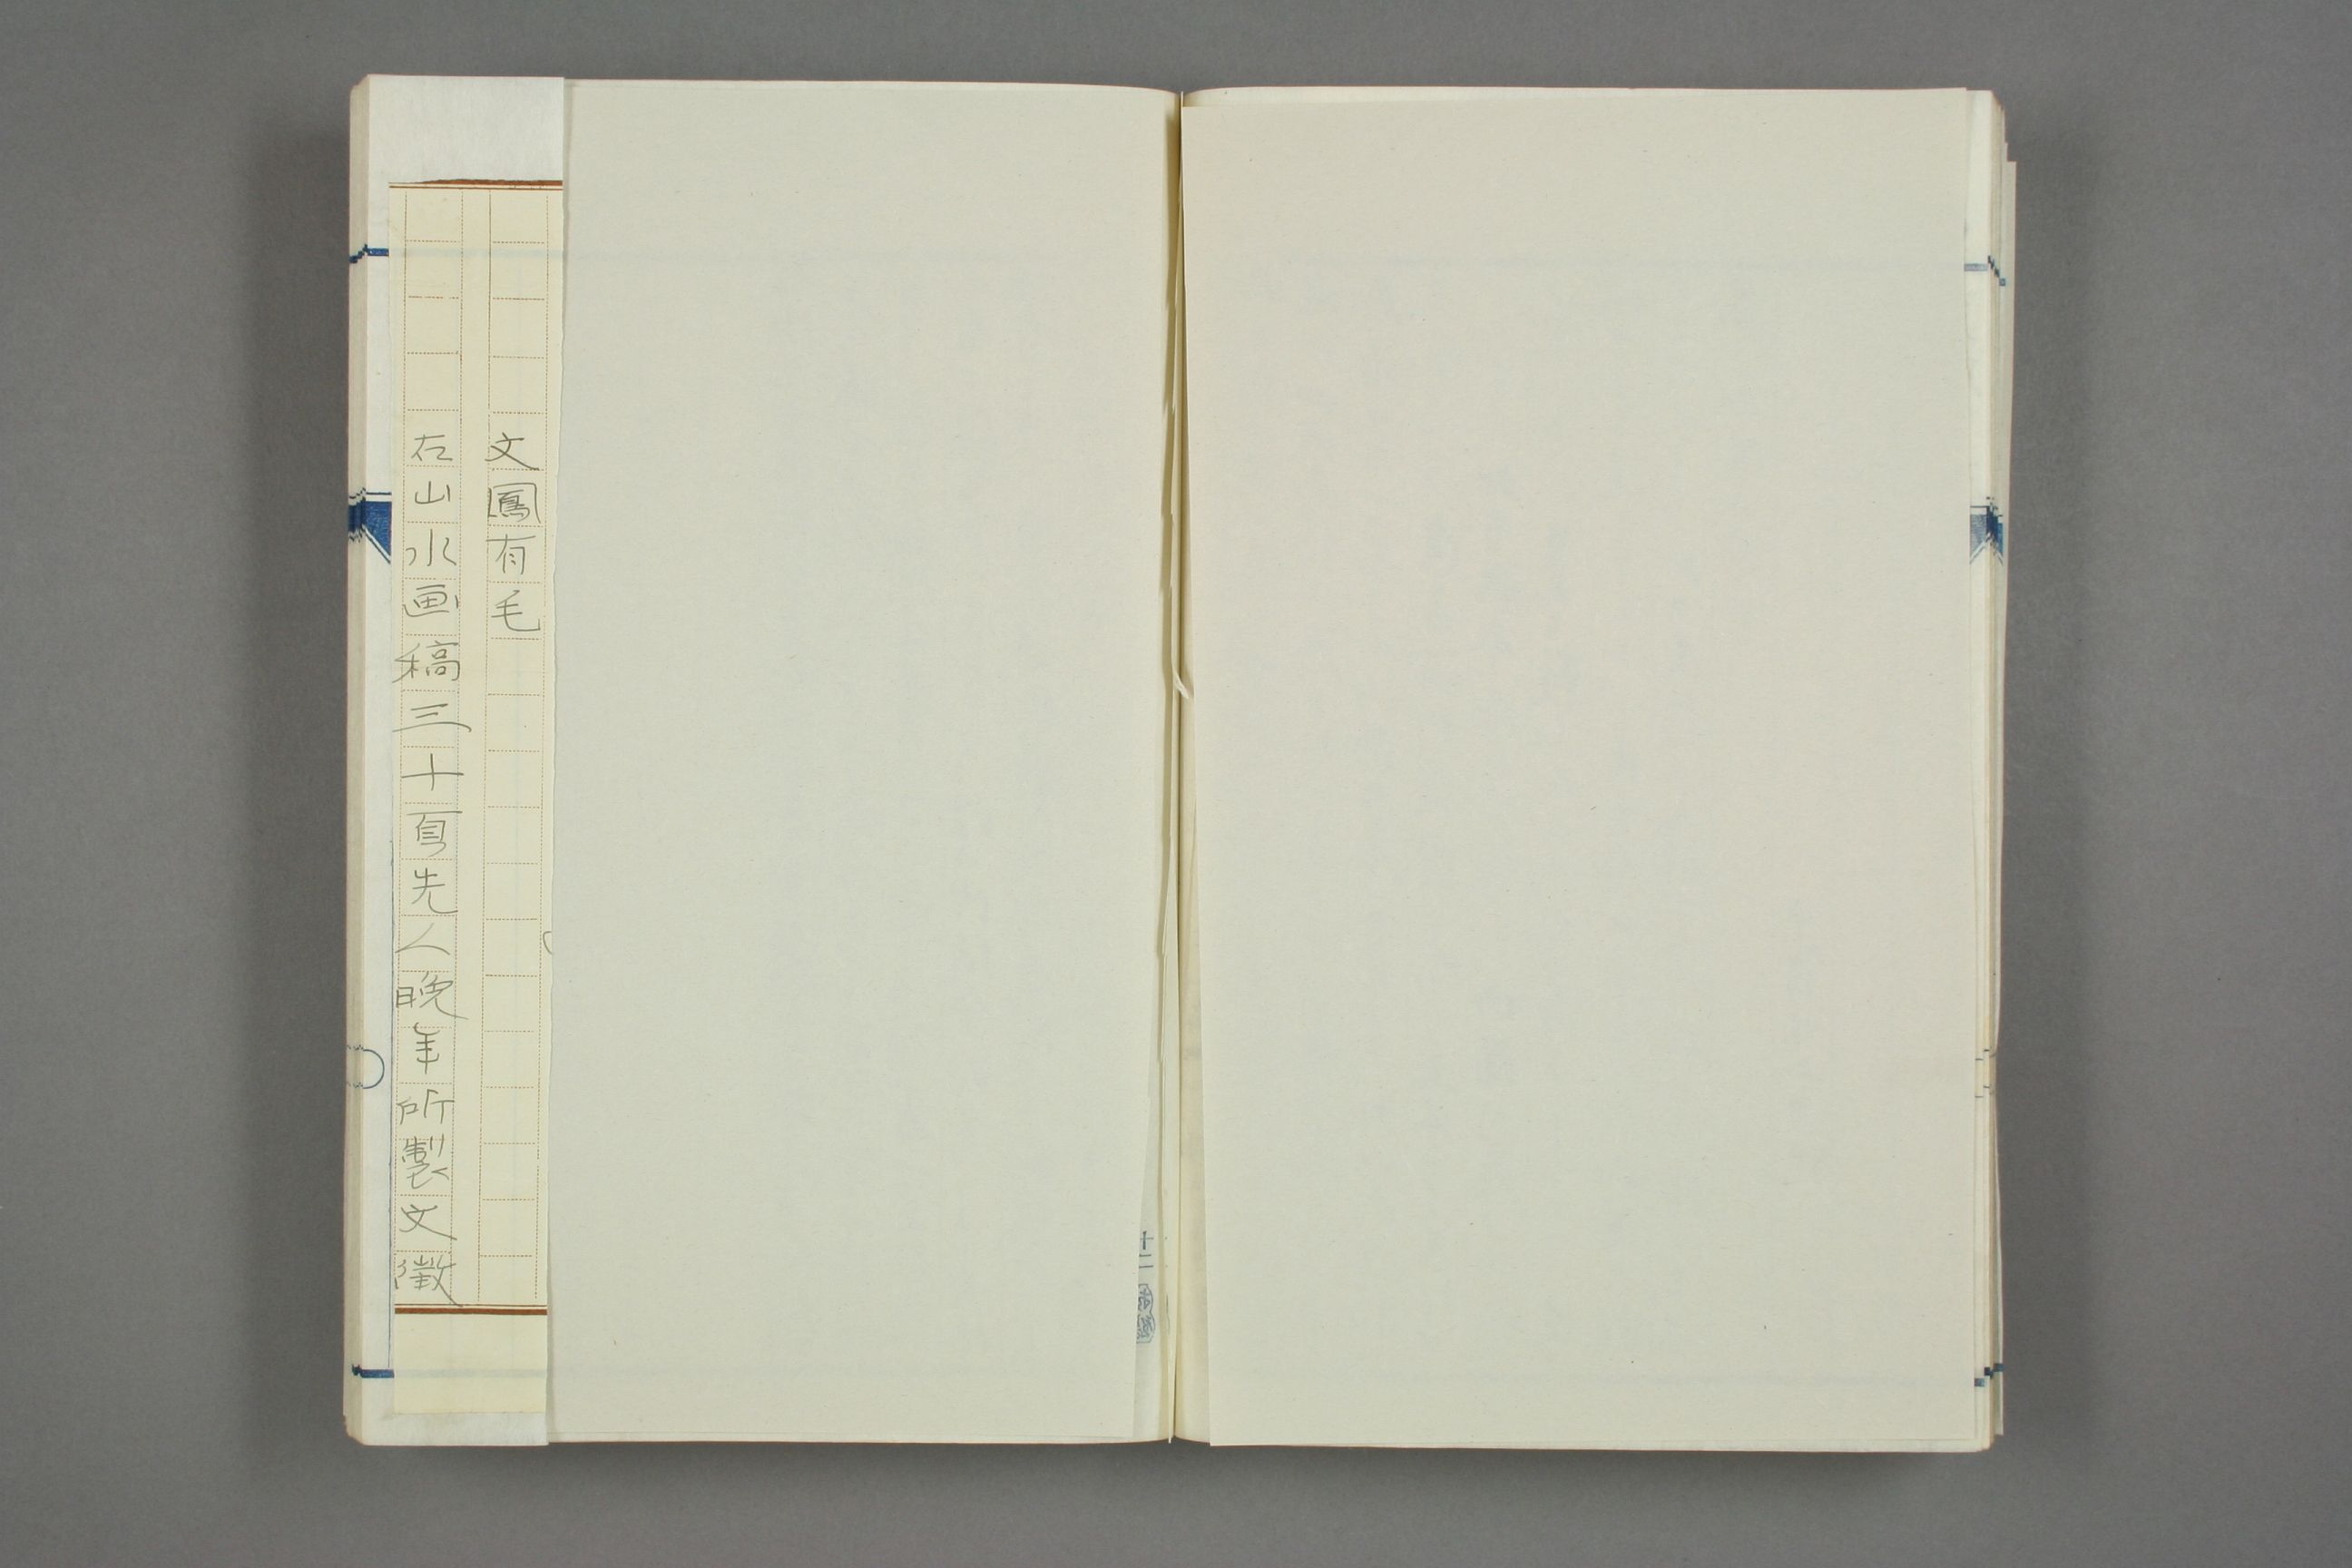 文鳳有毛
左山水画稿三十頁先人晚年所製文徵
十二